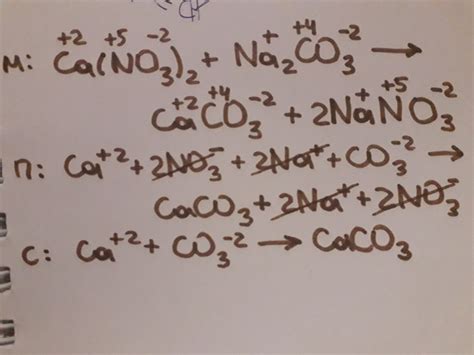 М: Ca⁺²(N⁺⁵O₃⁻²)₂ + Na₂⁺C⁺⁴O₃⁻² →
Ca⁺²C⁺⁴O₃⁻² + 2Na⁺N⁺⁵O₃⁻²
П: Ca⁺² + 2NO₃⁻ + 2Na⁺ + CO₃⁻² →
CaCO₃ + 2Na⁺ + 2NO₃⁻
С: Ca⁺² + CO₃⁻² → CaCO₃